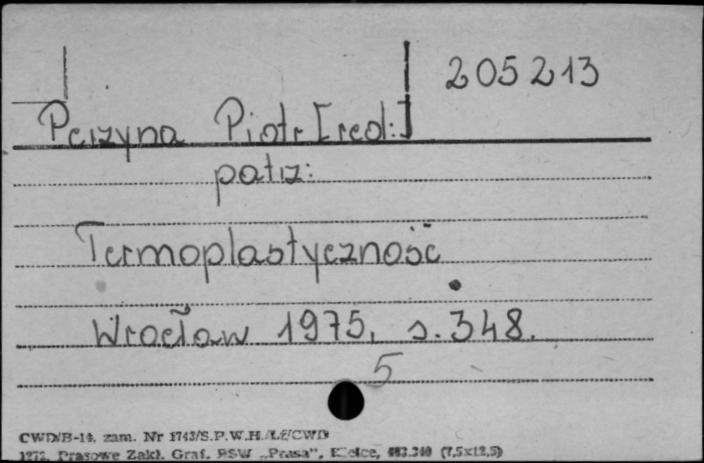 205213
Perzyna Piotr [red.:]
patrz:
Termoplastyczność
Wrocław 1975, s. 348.
5
CWD/B-14, zam. Nr 1743/S.P.W.H./LZ/CWD
1972. Prasowe Zakł. Graf. RSW „Prasa”, Kielce, (7,5x12,5)